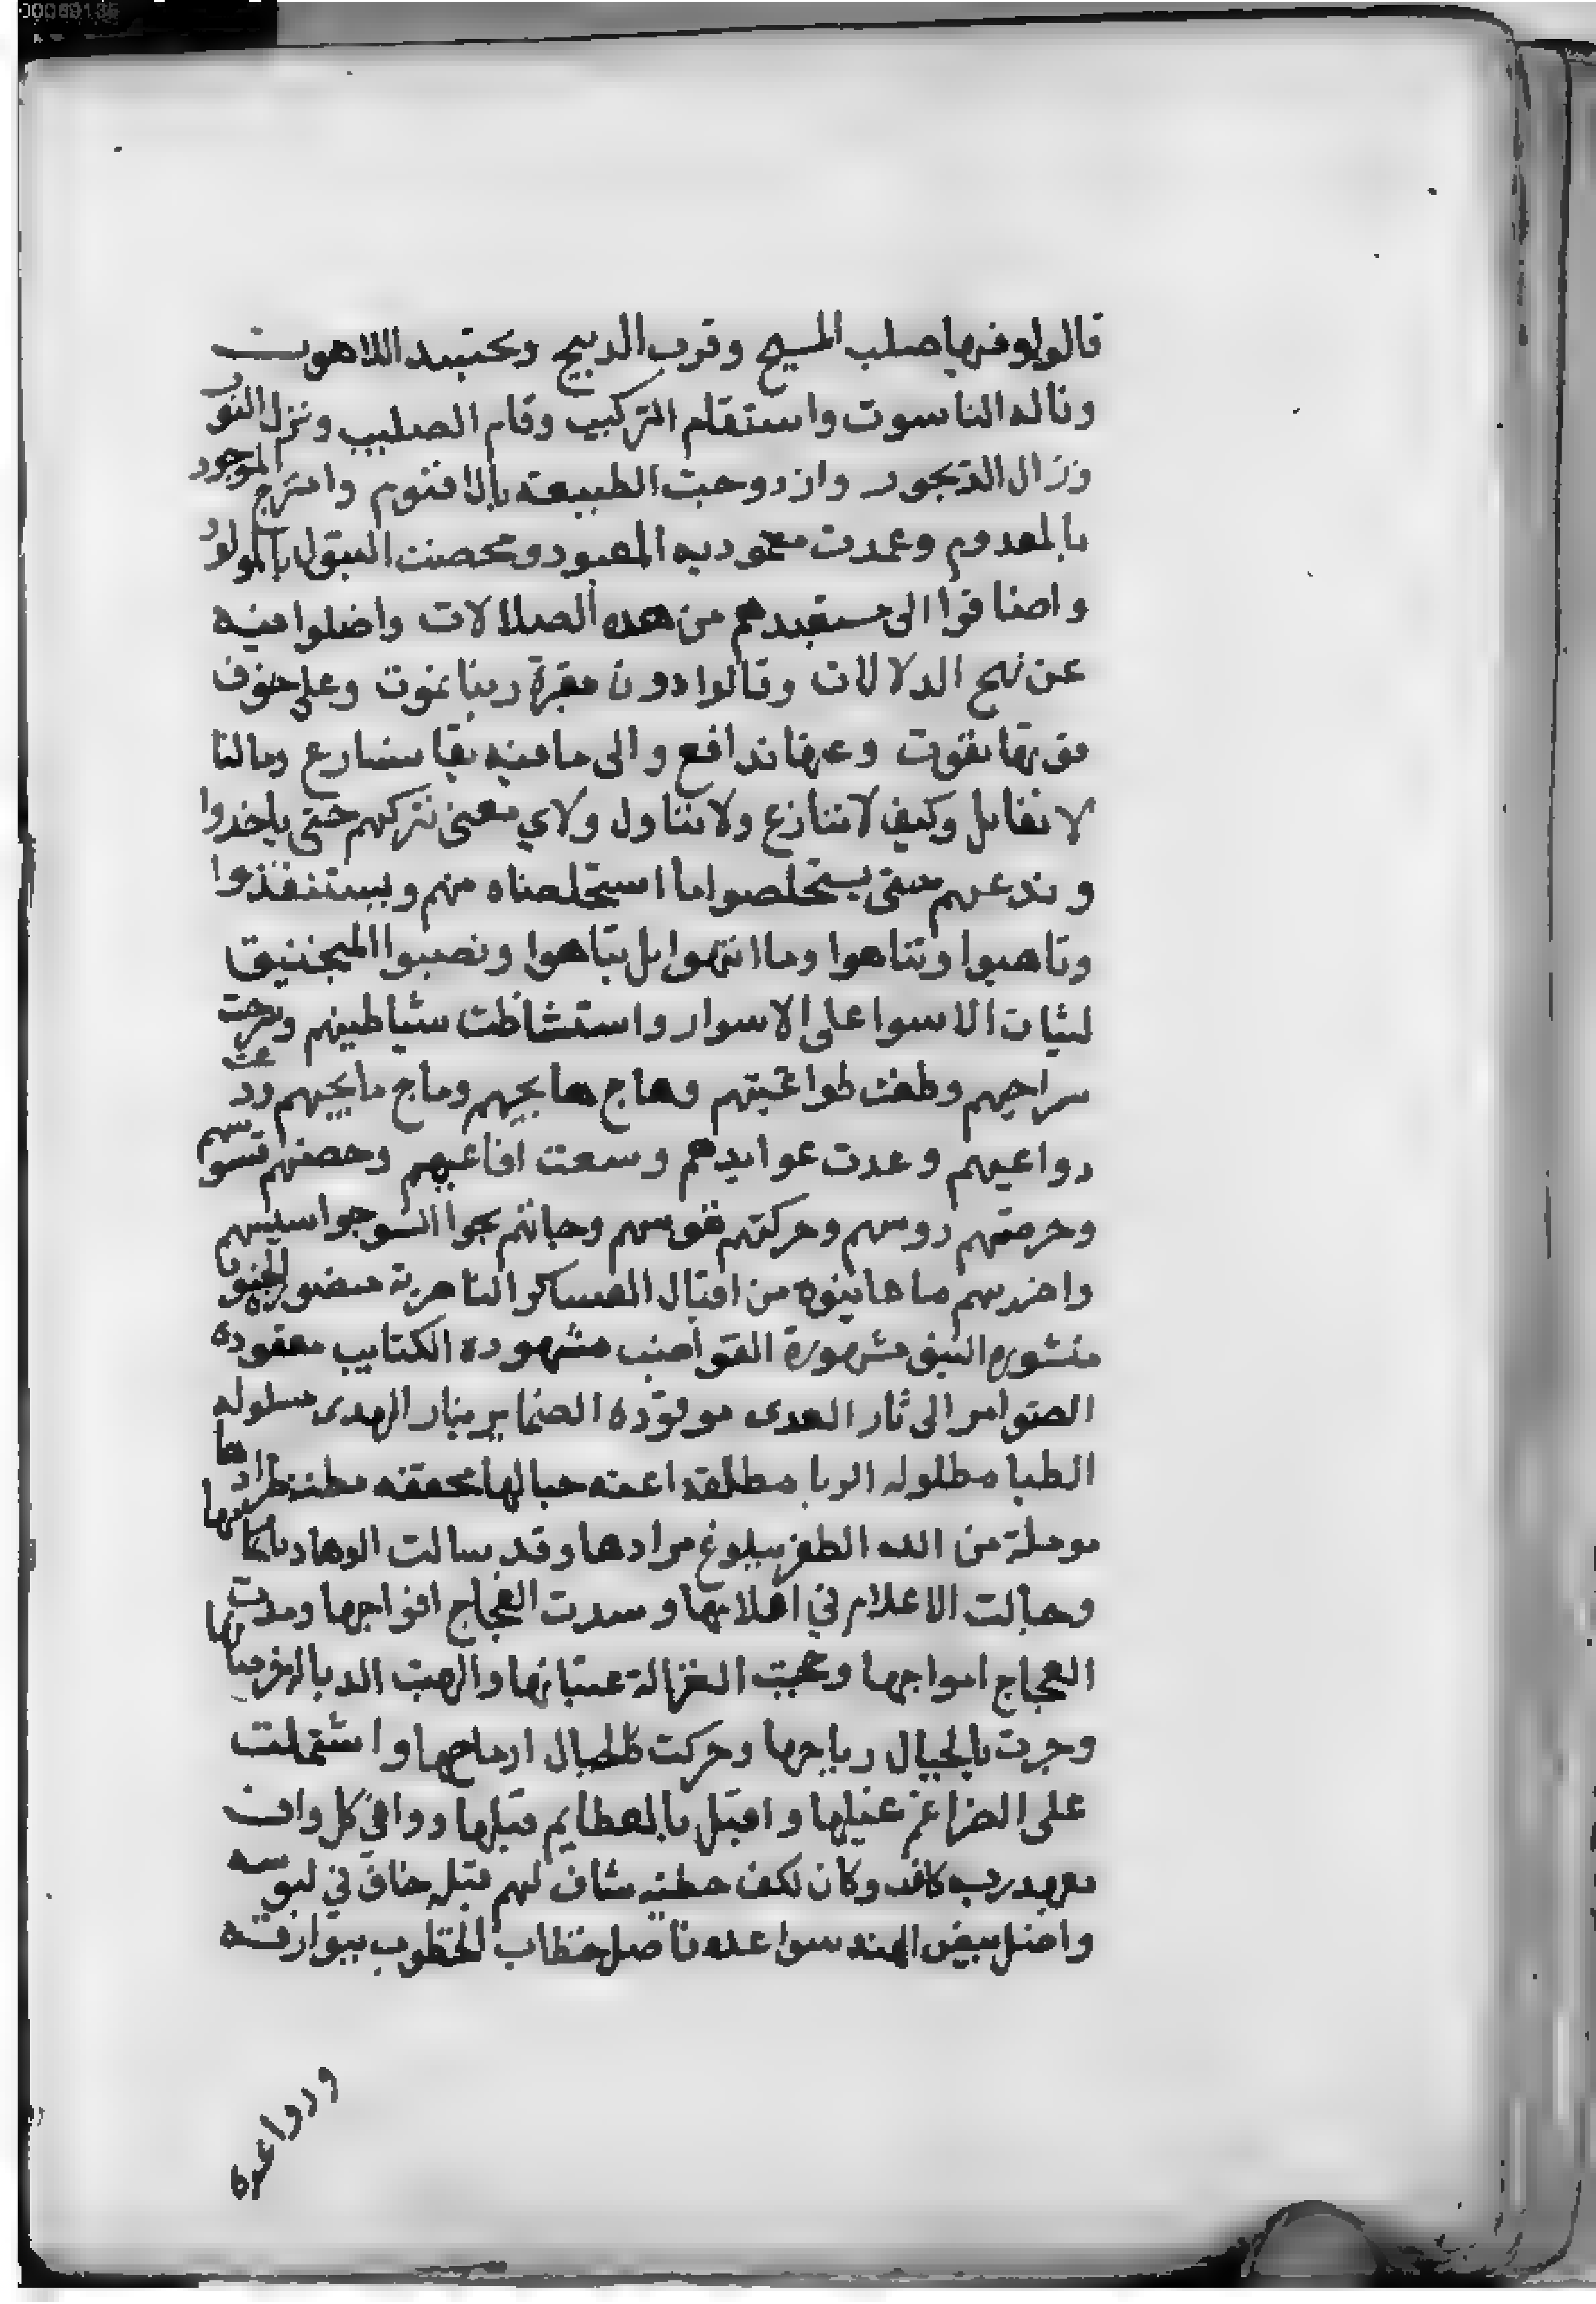 00069135
قالوا وفيها صلب المسيح وقرب الدبيح وتجسد اللاهوت
وتاله الناسوت واستقام التركيب وقام الصليب ونزل النور
وزال الديجور وازدوجت الطبيعة بالاقنوم وامتزج الموجود
بالمعدوم وعمدت معموديه المعبود ومخضت البتول بالمولود
واضافوا الى متعبدهم من هده الضلالات واضلوا فيه
عن نهج الدلالات وقالوا دون مقبرة ربنا نموت وعلى خوف
فوتها نفوت وعنها ندافع والى ما فيه بقا نسارع ومالنا
لا نقاتل وكيف لا ننازع ولا نناول ولاي معنى نتركهم حتى ياخدوا
وندعهم حتى يستخلصوا ما استخلصناه منهم ويستنقذوا
وتاهبوا وتناهوا وما انتهوا بل تباهوا ونصبوا المنجنيق
لثبات الاسوا على الاسوار واستشاطت شياطينهم وسرحت
سراحيهم وطغت طواغيتهم وهاج هايجهم وماج مايجهم ودعت
دواعيهم وعدت عواديهم وسعت افاعيهم وحضهم قسوسهم
وحرضتهم روسهم وحركتهم نفوسهم وجاتهم بجوا السو جواسيسهم
واخبرهم ما عاينوه من اقبال العساكر الناصرية منصورة الجنود
منشوره البنود مشهورة القواضب مشهوده الكتايب معقوده
الضوامر الى ثار العدى موقوده الضماير بنار الهدى مسلوله
الظبا مطلوله الربا مطلقه اعنه جبالها محققه مظنه طرادها
موصلة من الله الظفر ببلوغ مرادها وقد سالت الوهاد باكامها
وجالت الاعلام في اعلامها وسدت الفجاج افواجها ومدت
العجاج امواجها وحجبت الغزالة عنانها والهبت
وجرت بالجبال رياحها وحركت كالحبال ارماحها واشتملت
على الضراغم غيلها واقبل بالعظايم قبلها ووافى كل واف
بعهد ربه كاف وكان لكف خطبه شاف لهم قبله خاف في لبوسه
واصل ببيض الهند سواعده فاصل خطاب الخطوب ببوارقه
ورواعده